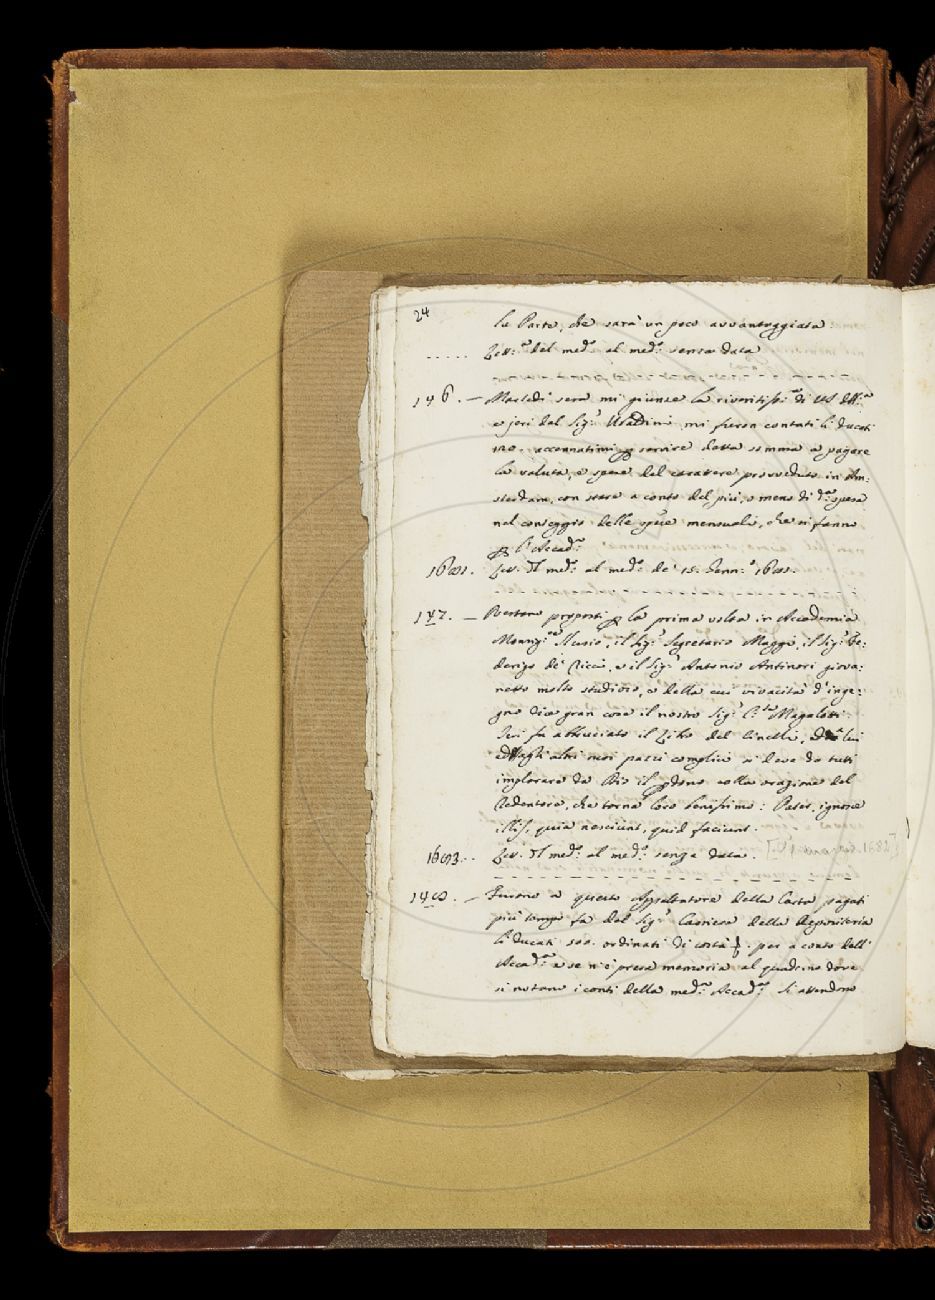 24
la Parte, che sarà un poco avvantaggiata.
..... Lett.ª del med.º al med.º senza data
146. — Martedì sera mi giunse la riveritiss.ª di VS Ill.ª
e jeri dal Sig.r Uladini mi furon contati li ducati
120. accennatimi per servire detta somma a pagare
la valuta, e spese del carattere provveduto in Am:
sterdam, con stare a conto del più, o meno di d.ª spesa
nel conteggio delle spese mensuali, che si fanno
per l'Accad.ª
1681. Lett. Del med.º al med.º de' 15. Genn.º 1681.
147. — Restano proposti per la prima volta in Accademia
Monsig.re Slusio, il Sig.r Segretario Maggi, il Sig.r Fe:
derigo de' Ricci, e il Sig.r Antonio Antinori giova:
netto molto studioso, e della cui vivacità d'inge:
gno dice gran cose il nostro Sig.r C.te Magalotti.
Ieri fu abbruciato il Libro del Cinelli, e di lui
e dagli altri suoi pazzi complici si deve da tutti
implorare da Dio il perdono colla orazione del
Redentore, che torna loro benissimo: Pater, ignosce
illis, quia nesciunt, quid faciunt.
1683. Lett. Del med.º al med.º senza data.
148. — Furono a questo Appaltatore della Carta pagati
più tempo fa dal Sig.r Cassiere della Depositeria
li ducati 500. ordinati di costà per a conto dell'
Accad.ª e se n'è presa memoria al quaderno dove
si notano i conti della med.ª Accad.ª Si attendono